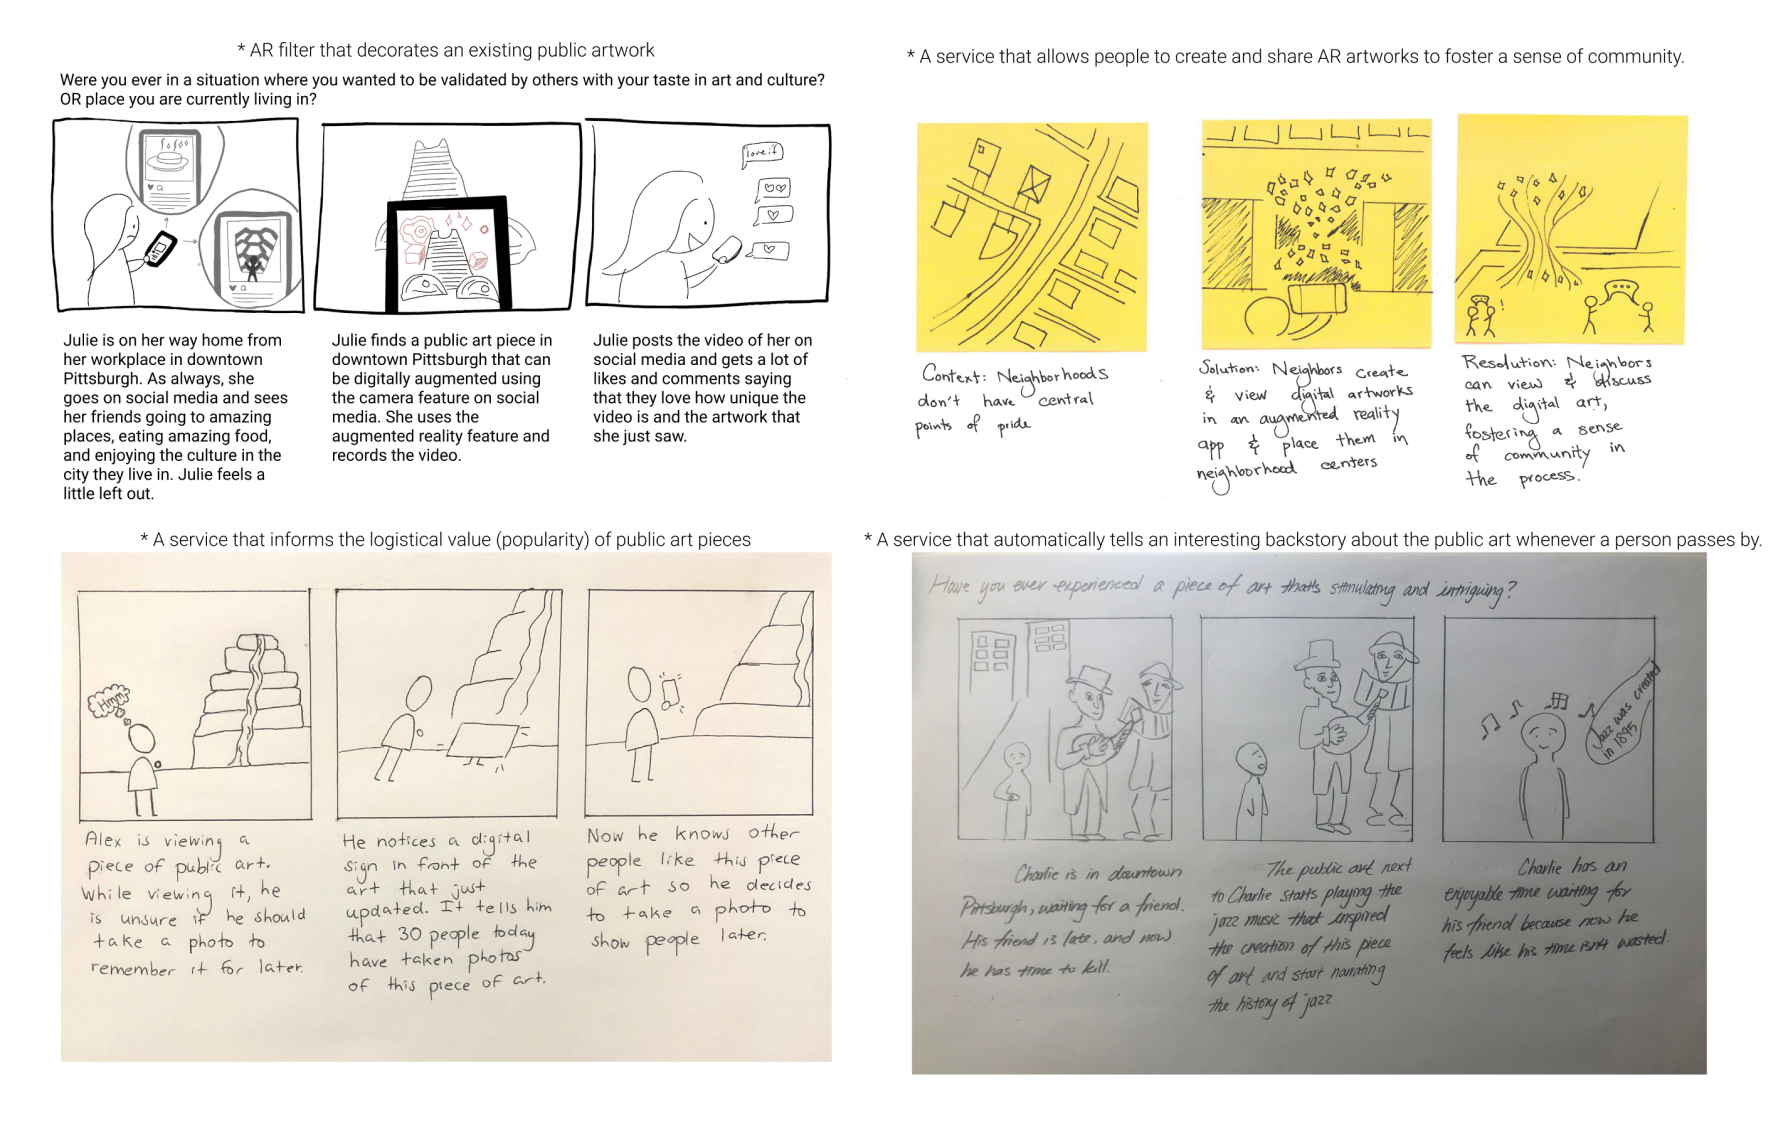 * AR filter that decorates an existing public artwork
Were you ever in a situation where you wanted to be validated by others with your taste in art and culture?
OR place you are currently living in?
love it
Julie is on her way home from
her workplace in downtown
Pittsburgh. As always, she
goes on social media and sees
her friends going to amazing
places, eating amazing food,
and enjoying the culture in the
city they live in. Julie feels a
little left out.
Julie finds a public art piece in
downtown Pittsburgh that can
be digitally augmented using
the camera feature on social
media. She uses the
augmented reality feature and
records the video.
Julie posts the video of her on
social media and gets a lot of
likes and comments saying
that they love how unique the
video is and the artwork that
she just saw.
* A service that allows people to create and share AR artworks to foster a sense of community.
Context: Neighborhoods
don't have central
points of pride
Solution: Neighbors create
& view digital artworks
in an augmented reality
app & place them in
neighborhood centers
Resolution: Neighbors
can view & discuss
the digital art,
fostering a sense
of community in
the process.
* A service that informs the logistical value (popularity) of public art pieces
Hmm
Alex is viewing a
piece of public art.
While viewing it, he
is unsure if he should
take a photo to
remember it for later.
He notices a digital
sign in front of the
art that just
updated. It tells him
that 30 people today
have taken photos
of this piece of art.
Now he knows other
people like this piece
of art so he decides
to take a photo to
show people later.
* A service that automatically tells an interesting backstory about the public art whenever a person passes by.
Have you ever experienced a piece of art that's stimulating and intriguing?
Jazz was created
in 1895
Charlie is in downtown
Pittsburgh, waiting for a friend.
His friend is late, and now
he has time to kill.
The public art next
to Charlie starts playing the
jazz music that inspired
the creation of this piece
of art and start narrating
the history of jazz
Charlie has an
enjoyable time waiting for
his friend because now he
feels like his time isn't wasted.